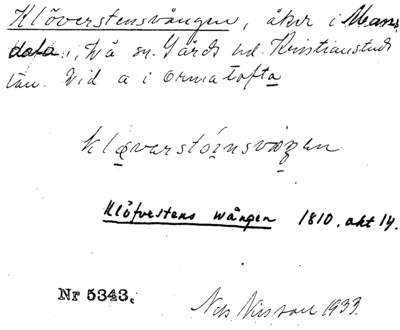 Klöverstensvången, åker i
, Två sn. Gärds hd. Kristianstads
län. Vid a i Ormatofta
Klöfverstens wången 1810. akt 14.
Nr 5343.
Nils Nilsson 1933.